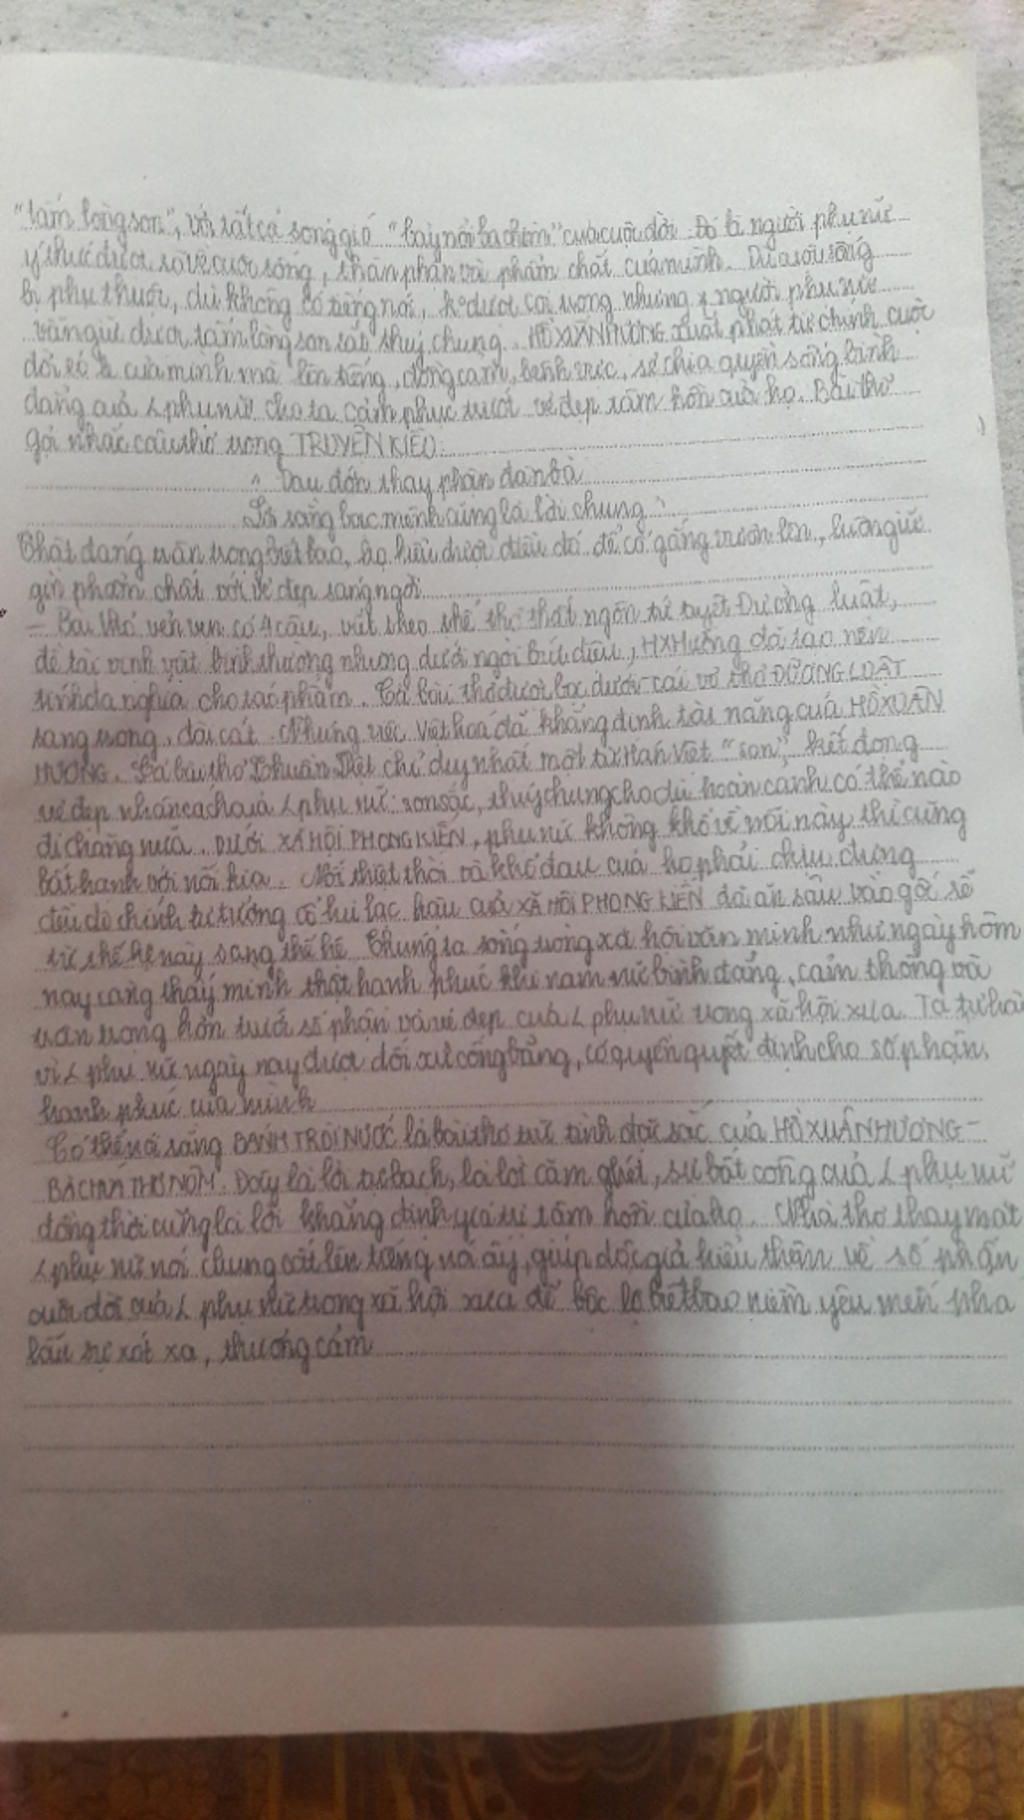 "tấm lòng son", với tất cả sóng gió "bảy nổi ba chìm" của cuộc đời. Đó là người phụ nữ
ý thức được về cuộc sống, thân phận và phẩm chất của mình. Dù cuộc sống
bị phụ thuộc, dù không có tiếng nói, ko được coi trọng nhưng người phụ nữ
vẫn giữ được tấm lòng son sắt thuỷ chung. HỒ XUÂN HƯƠNG xuất phát từ chính cuộc
đời của mình mà lên tiếng, đồng cảm, bênh vực, sẻ chia quyền sống bình
đẳng của phụ nữ cho ta cảm phục trước vẻ đẹp tâm hồn của họ. Bài thơ
gợi nhắc câu thơ trong TRUYỆN KIỀU:
"Đau đớn thay phận đàn bà
Lời rằng bạc mệnh cũng là lời chung"
Thật đáng trân trọng biết bao, họ hiểu được điều đó để cố gắng vươn lên, luôn giữ
gìn phẩm chất với vẻ đẹp sáng ngời
- Bài thơ vẻn vẹn có 4 câu, viết theo thể thơ thất ngôn tứ tuyệt Đường luật,
đề tài vịnh vật bình thường nhưng dưới ngòi bút diệu, HXHương đã tạo nên
tính đa nghĩa cho tác phẩm. Cả bài thơ được bọc dưới cái vỏ thơ ĐƯỜNG LUẬT
sang trọng, đài cát. Nhưng việc Việt hoá đã khẳng định tài năng của HỒ XUÂN
HƯƠNG. Cả bài thơ Thuần Việt chỉ duy nhất một từ Hán Việt "son", kết đọng
vẻ đẹp nhân cách của phụ nữ: son sắc, thuỷ chung cho dù hoàn cảnh có thế nào
đi chăng nữa. DƯỚI XÃ HỘI PHONG KIẾN, phụ nữ không khổ về nỗi này thì cũng
bất hạnh với nỗi kia. Nỗi thiệt thòi và khổ đau của họ phải chịu đựng
đều do chính tư tưởng cổ hủ lạc hậu của XÃ HỘI PHONG KIẾN đã ăn sâu vào gốc rễ
từ thế hệ này sang thế hệ. Chúng ta sống trong xã hội văn minh như ngày hôm
nay càng thấy mình thật hạnh phúc khi nam nữ bình đẳng, cảm thông và
trân trọng hơn trước số phận và vẻ đẹp của phụ nữ trong xã hội xưa. Ta tự hào
vì phụ nữ ngày nay được đối xử công bằng, có quyền quyết định cho số phận,
hạnh phúc của mình
Có thể nói rằng BÁNH TRÔI NƯỚC là bài thơ trữ tình đặc sắc của HỒ XUÂN HƯƠNG -
BÀ CHÚA THƠ NÔM. Đây là lời tự bạch, là lời căm ghét, sự bất công của phụ nữ
đồng thời cũng là lời khẳng định giá trị tâm hồn của họ. Nhà thơ thay mặt
phụ nữ nói chung cất lên tiếng nói ấy, giúp độc giả hiểu thêm về số phận
cuộc đời của phụ nữ trong xã hội xưa để bộc lộ biết bao niềm yêu mến pha
lẫn sự xót xa, thương cảm